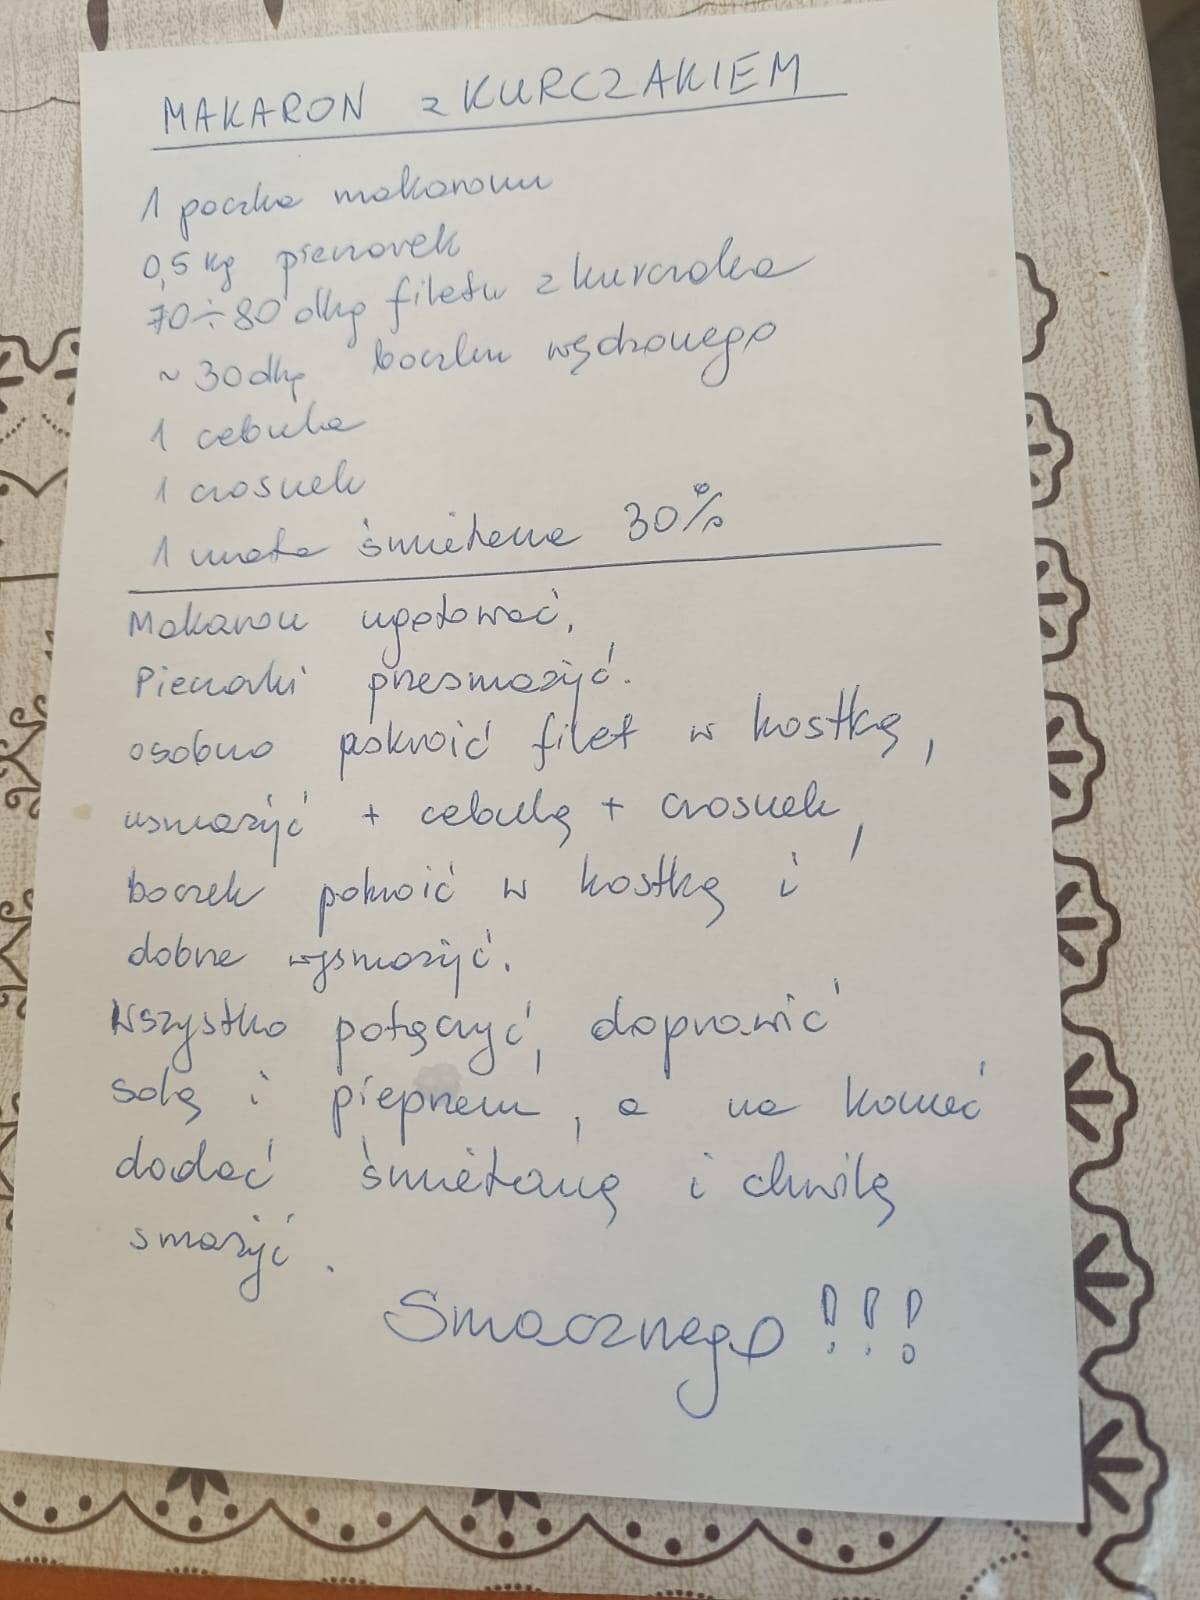 MAKARON z KURCZAKIEM
1 paczka makaronu
0,5 kg pieczarek
70÷80 dkg filetu z kurczaka
~ 30 dkg boczku wędzonego
1 cebula
1 czosnek
1 mała śmietana 30%
Makaron ugotować,
Pieczarki przesmażyć.
osobno pokroić filet w kostkę,
usmażyć + cebulę + czosnek,
boczek pokroić w kostkę i
dobrze wysmażyć.
Wszystko połączyć, doprawić
solą i pieprzem, a na koniec
dodać śmietanę i chwilę
smażyć.
Smacznego!!!